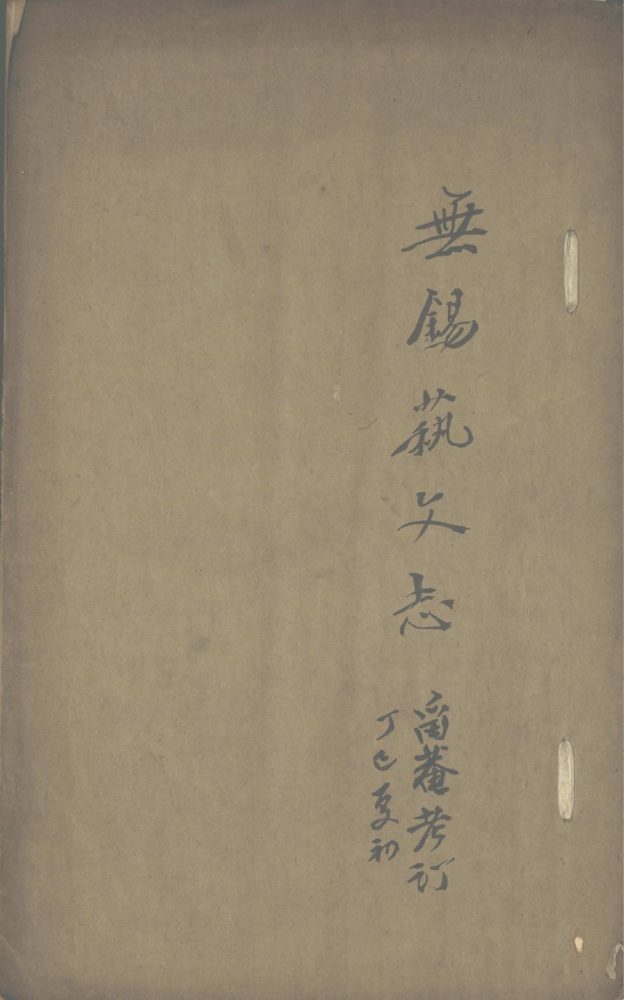 無錫藝文志
甾菴考訂
丁巳夏初